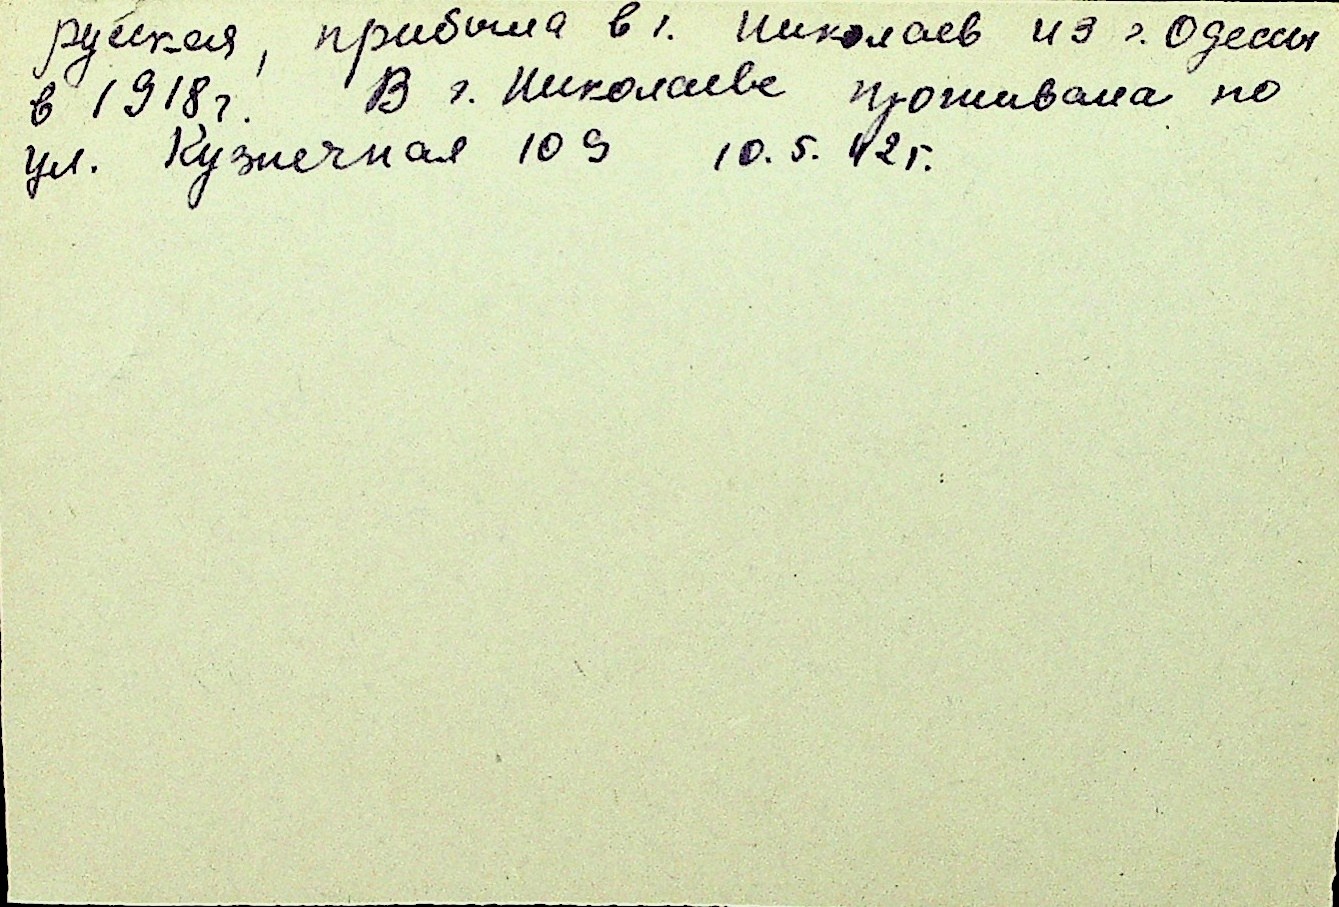 русская, прибыла в г. Николаев из г. Одессы
в 1918 г. В г. Николаеве проживала по
ул. Кузнечная 109 10.5.42 г.